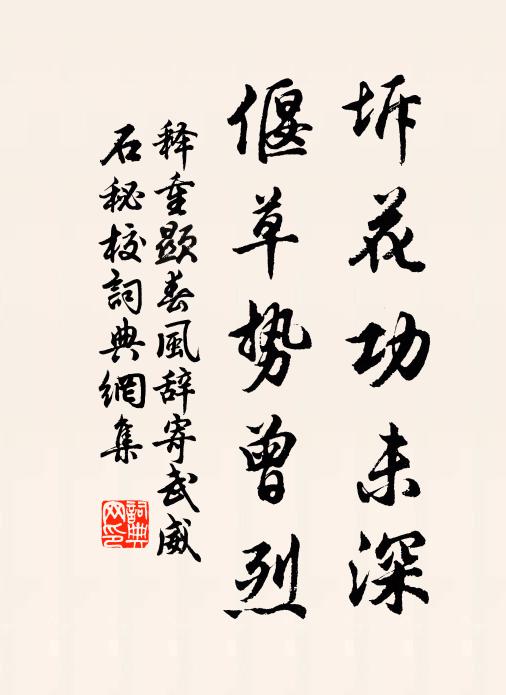 坼花功未深
偃草势曾烈
释重显春風辞寄武威
石秘校詞典網集
詞典网印